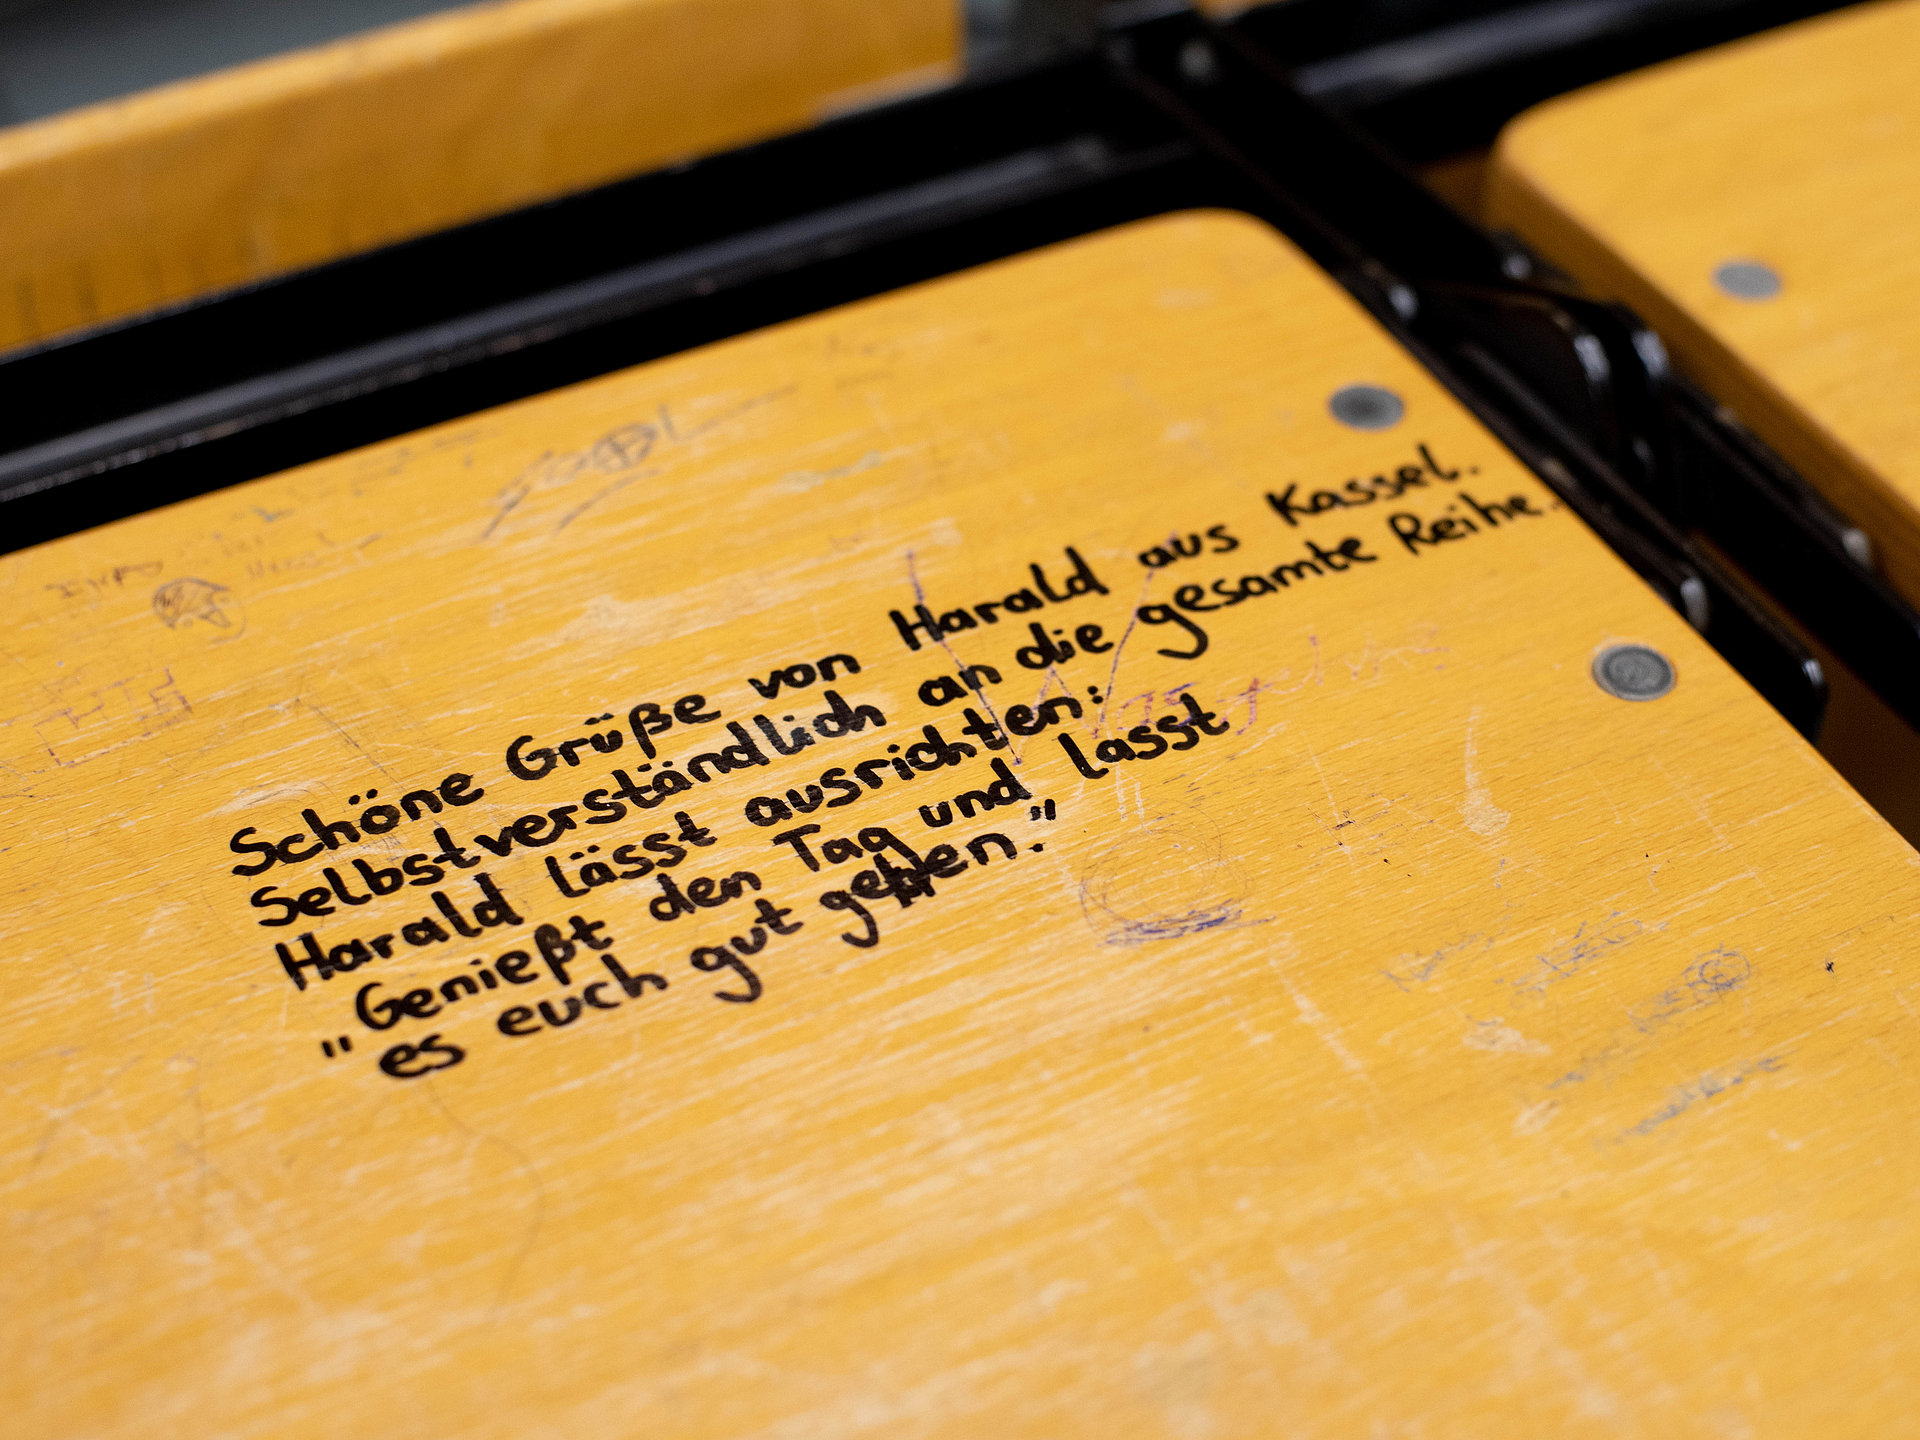 Schöne Grüße von Harald aus Kassel.
Selbstverständlich an die gesamte Reihe.
Harald lässt ausrichten:
"Genießt den Tag und lasst
es euch gut gehen."